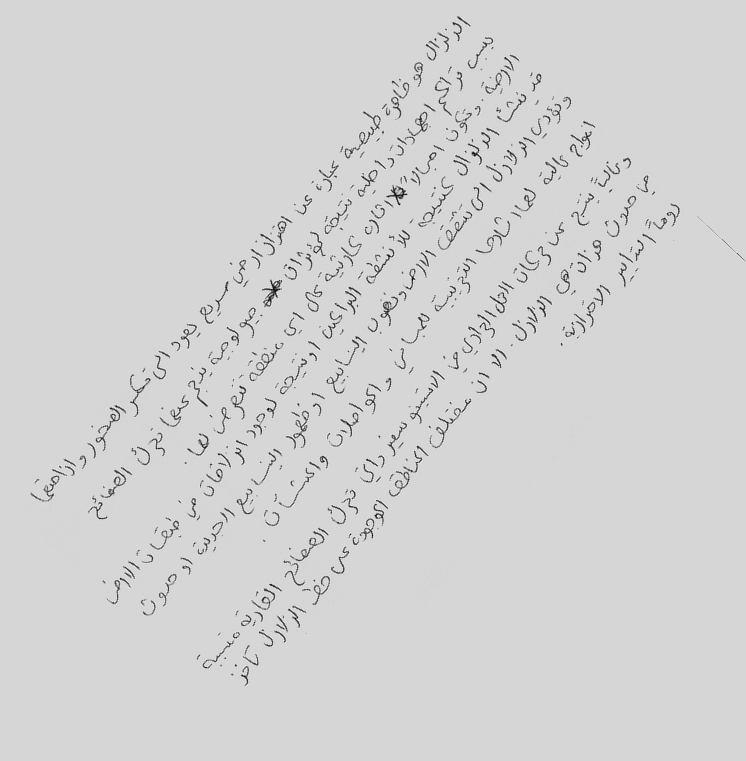 الزلزال هو ظاهرة طبيعية عبارة عن اهتزاز ارضي سريع يعود الى تكسر الصخور وازاحتها
بسبب تراكم اجهادات داخلية نتيجة لمؤثرات جيولوجية ينجم عنها تحرك الصفائح
الارضية. وتكون احيالا اثاره كارثية على اي منطقة تتعرض لها.
قد تنشأ الزلازل كنتيجة لأنشطة البراكين او نتيجة لوجود انزلاقات في طبقات الارض
وتؤدي الزلازل الى تشقق الارض ونضوب الينابيع او ظهور الينابيع الجديدة او حدوث
امواج عالية لها اثارها التخريبية للمباني والمواصلات والمنشآت.
وغالباً ينتج عن حركات الحمل الحراري في الاستينوسفير والتي تحرك الصفائح القارية متسببة
في حدوث هزات هي الزلازل. الا ان مختلف المناطق الموجودة على خط الزلازل تأخذ
دوماً التدابير الاحترازية.